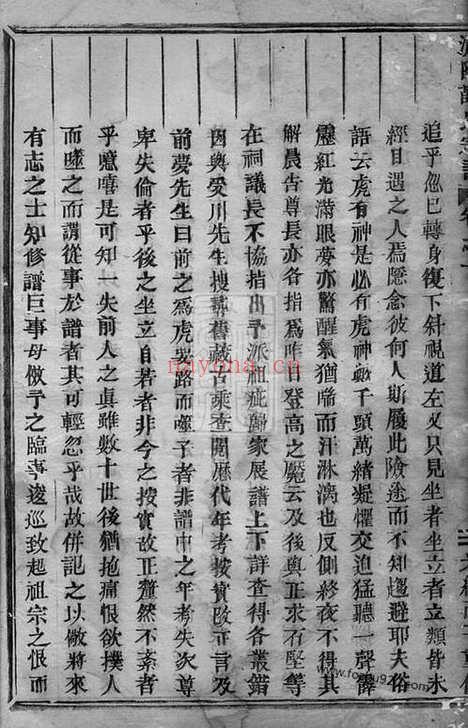 追乎忽已轉身復下斜視道左又只見坐者坐立者立類皆未
經目遇之人焉隱念彼何人斯履此險途而不知趨避耶夫俗
語云虎有神是必有虎神歟千頭萬緒疑懼交迫猛聽一聲霹
靂紅光滿眼夢亦驚醒氣猶喘而汗淋漓也反側終夜不得其
解晨告尊長亦各指為昨日登高之魘云及後與正求有堅等
在祠議長不協指出予派祖疵歸家展譜上下詳查得各叢錯
因與受川先生搜尋舊藏古乘查閱歷代年考按實改正言及
前夢先生曰前之為虎哭路而噬子者非譜中之年考失次尊
卑失倫者乎後之坐立自若者非今之按實故正釐然不紊者
乎噫嘻是可知一失前人之真雖數十世後猶抱痛恨欲撲人
而噬之而謂從事於譜者其可輕忽乎哉故併記之以儆將來
有志之士知修譜巨事毋倣予之臨專逡巡致起祖宗之恨而
nayona.cn